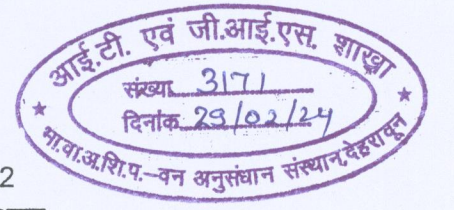 आई.टी. एवं जी.आई.एस. शाखा
संख्या 3171
दिनांक 29/02/24
भा.वा.अ.शि.प.-वन अनुसंधान संस्थान, देहरादून
2